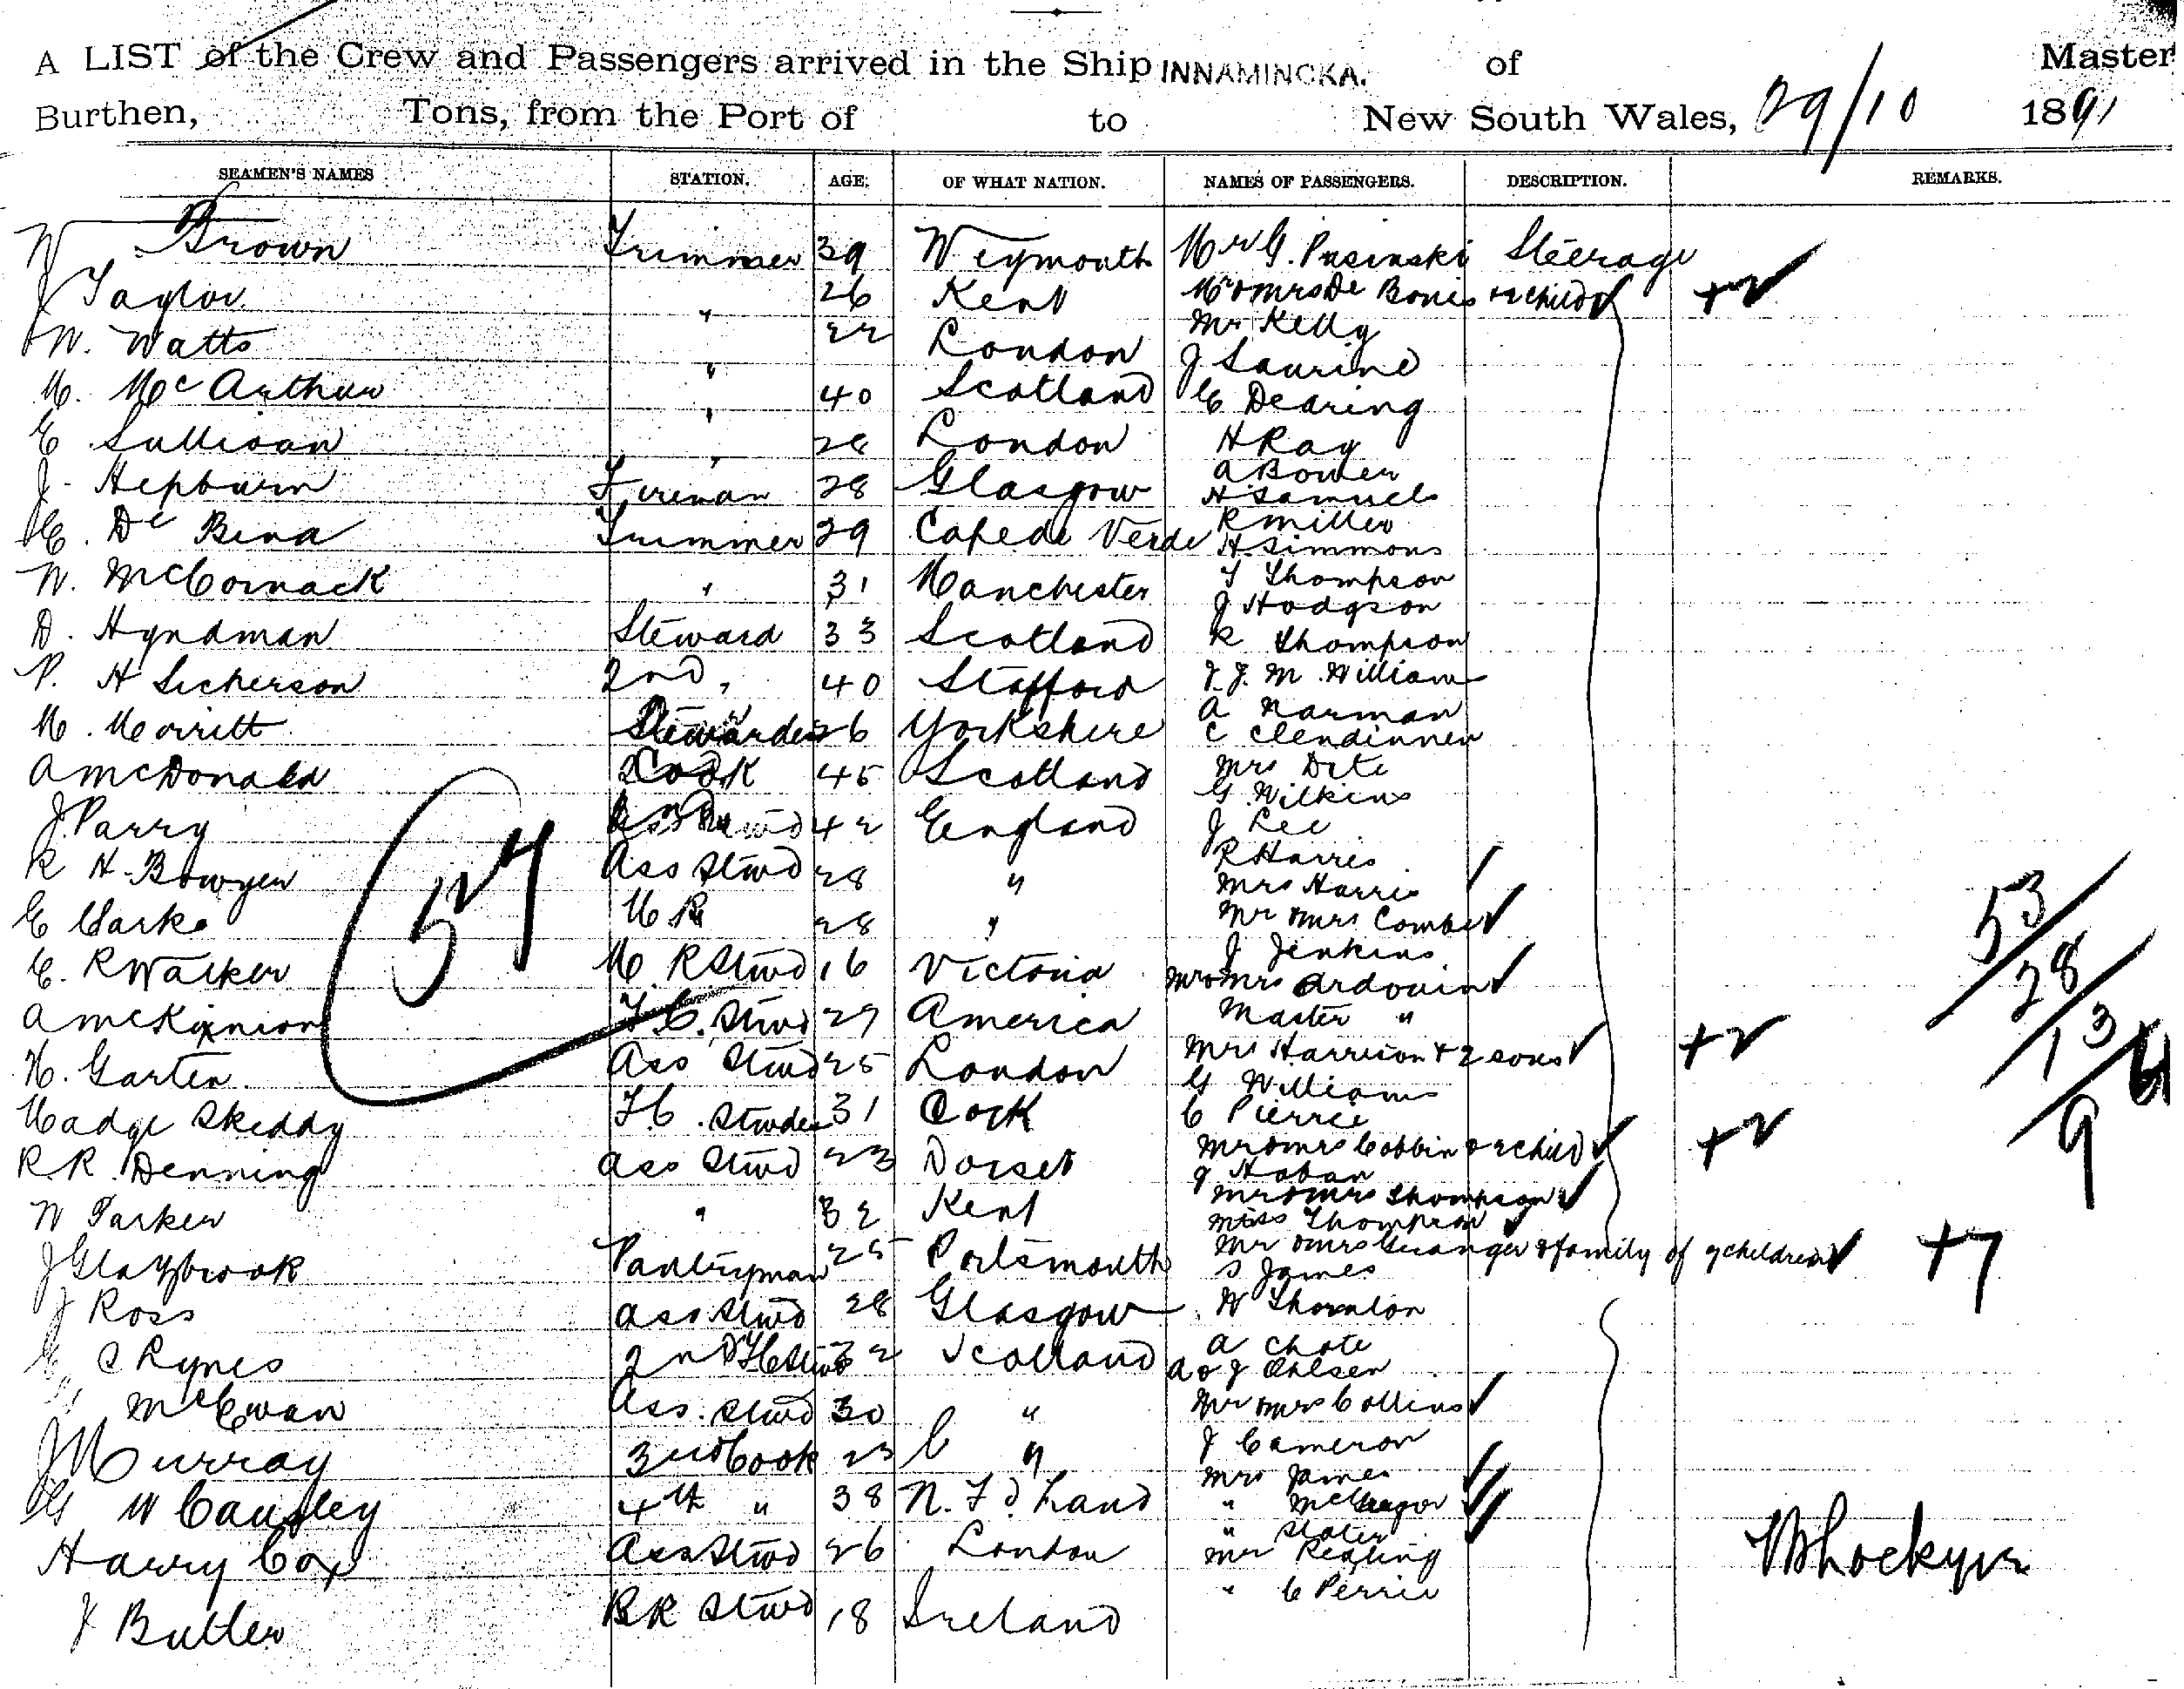 A LIST of the Crew and Passengers arrived in the Ship INNAMINCKA. of Master
Burthen, Tons, from the Port of to New South Wales, 29/10 1891
SEAMEN'S NAMES STATION. AGE. OF WHAT NATION. NAMES OF PASSENGERS. DESCRIPTION. REMARKS.
W Brown Trimmer 39 Weymouth Mr G. Pusinski Steerage
J Taylor " 26 Kent Mr & Mrs De Bonis + 2 child +2
W. Watts " 22 London Mr Kelly
J Laurine
M. McArthur " 40 Scotland C Dearing
E Sullivan " 28 London H Ray
A Bower
J Hepburn Fireman 28 Glasgow H Samuels
R Miller
C. De Bina Trimmer 29 Cape de Verde H. Simmons
W. McCormack " 31 Manchester T Thompson
J Hodgson
D. Hyndman Steward 33 Scotland R Thompson
P. H Sicherson 2nd " 40 Stafford J. J. M. William
A Narman
M. Morritt Stewardess 26 Yorkshire C Clendinnen
A McDonald Cook 45 Scotland Mrs Dite
G. Wilkins
J. Parry 42 England J Lee
R H. Bowyer Ass Stwd 28 " R Harris
Mrs Harris
E Clarke M R 28 " Mr & Mrs Combe
J Jenkins
E. R Walker M. R Stwd 16 Victoria Mr & Mrs Ardouin
A McKinnon F. C. Stwd 27 America Master "
54
H. Garten Ass Stwd 25 London Mrs Harrison + 2 sons +2
G Williams
Madge Skeddy F C. Stwdes 31 Cork C Pierrie
R. R. Denning Ass Stwd 23 Dorset Mr & Mrs Cobbin & 2 child +2
J Hoban
W Parker " 32 Kent Mr & Mrs Thompson
Miss Thompson
J Glazbrook Pantryman 25 Portsmouth Mr & Mrs Granger & family of 7 children +7
S James
J Ross Ass Stwd 28 Glasgow W Thornton
E C Rynes 2nd F C Stwd 32 Scotland A Chote
A & J Ohlsen
McEwan Ass. Stwd 30 " Mr & Mrs Collins
J Murray 3rd Cook 23 " J Cameron
Mrs James
G W Causley 4th " 38 N. F d. Land " McGregor
" Slater
Harry Cox Ass Stwd 26 London Mr Realing
J Butler B R Stwd 18 Ireland " C Perrie
53
28
13
9